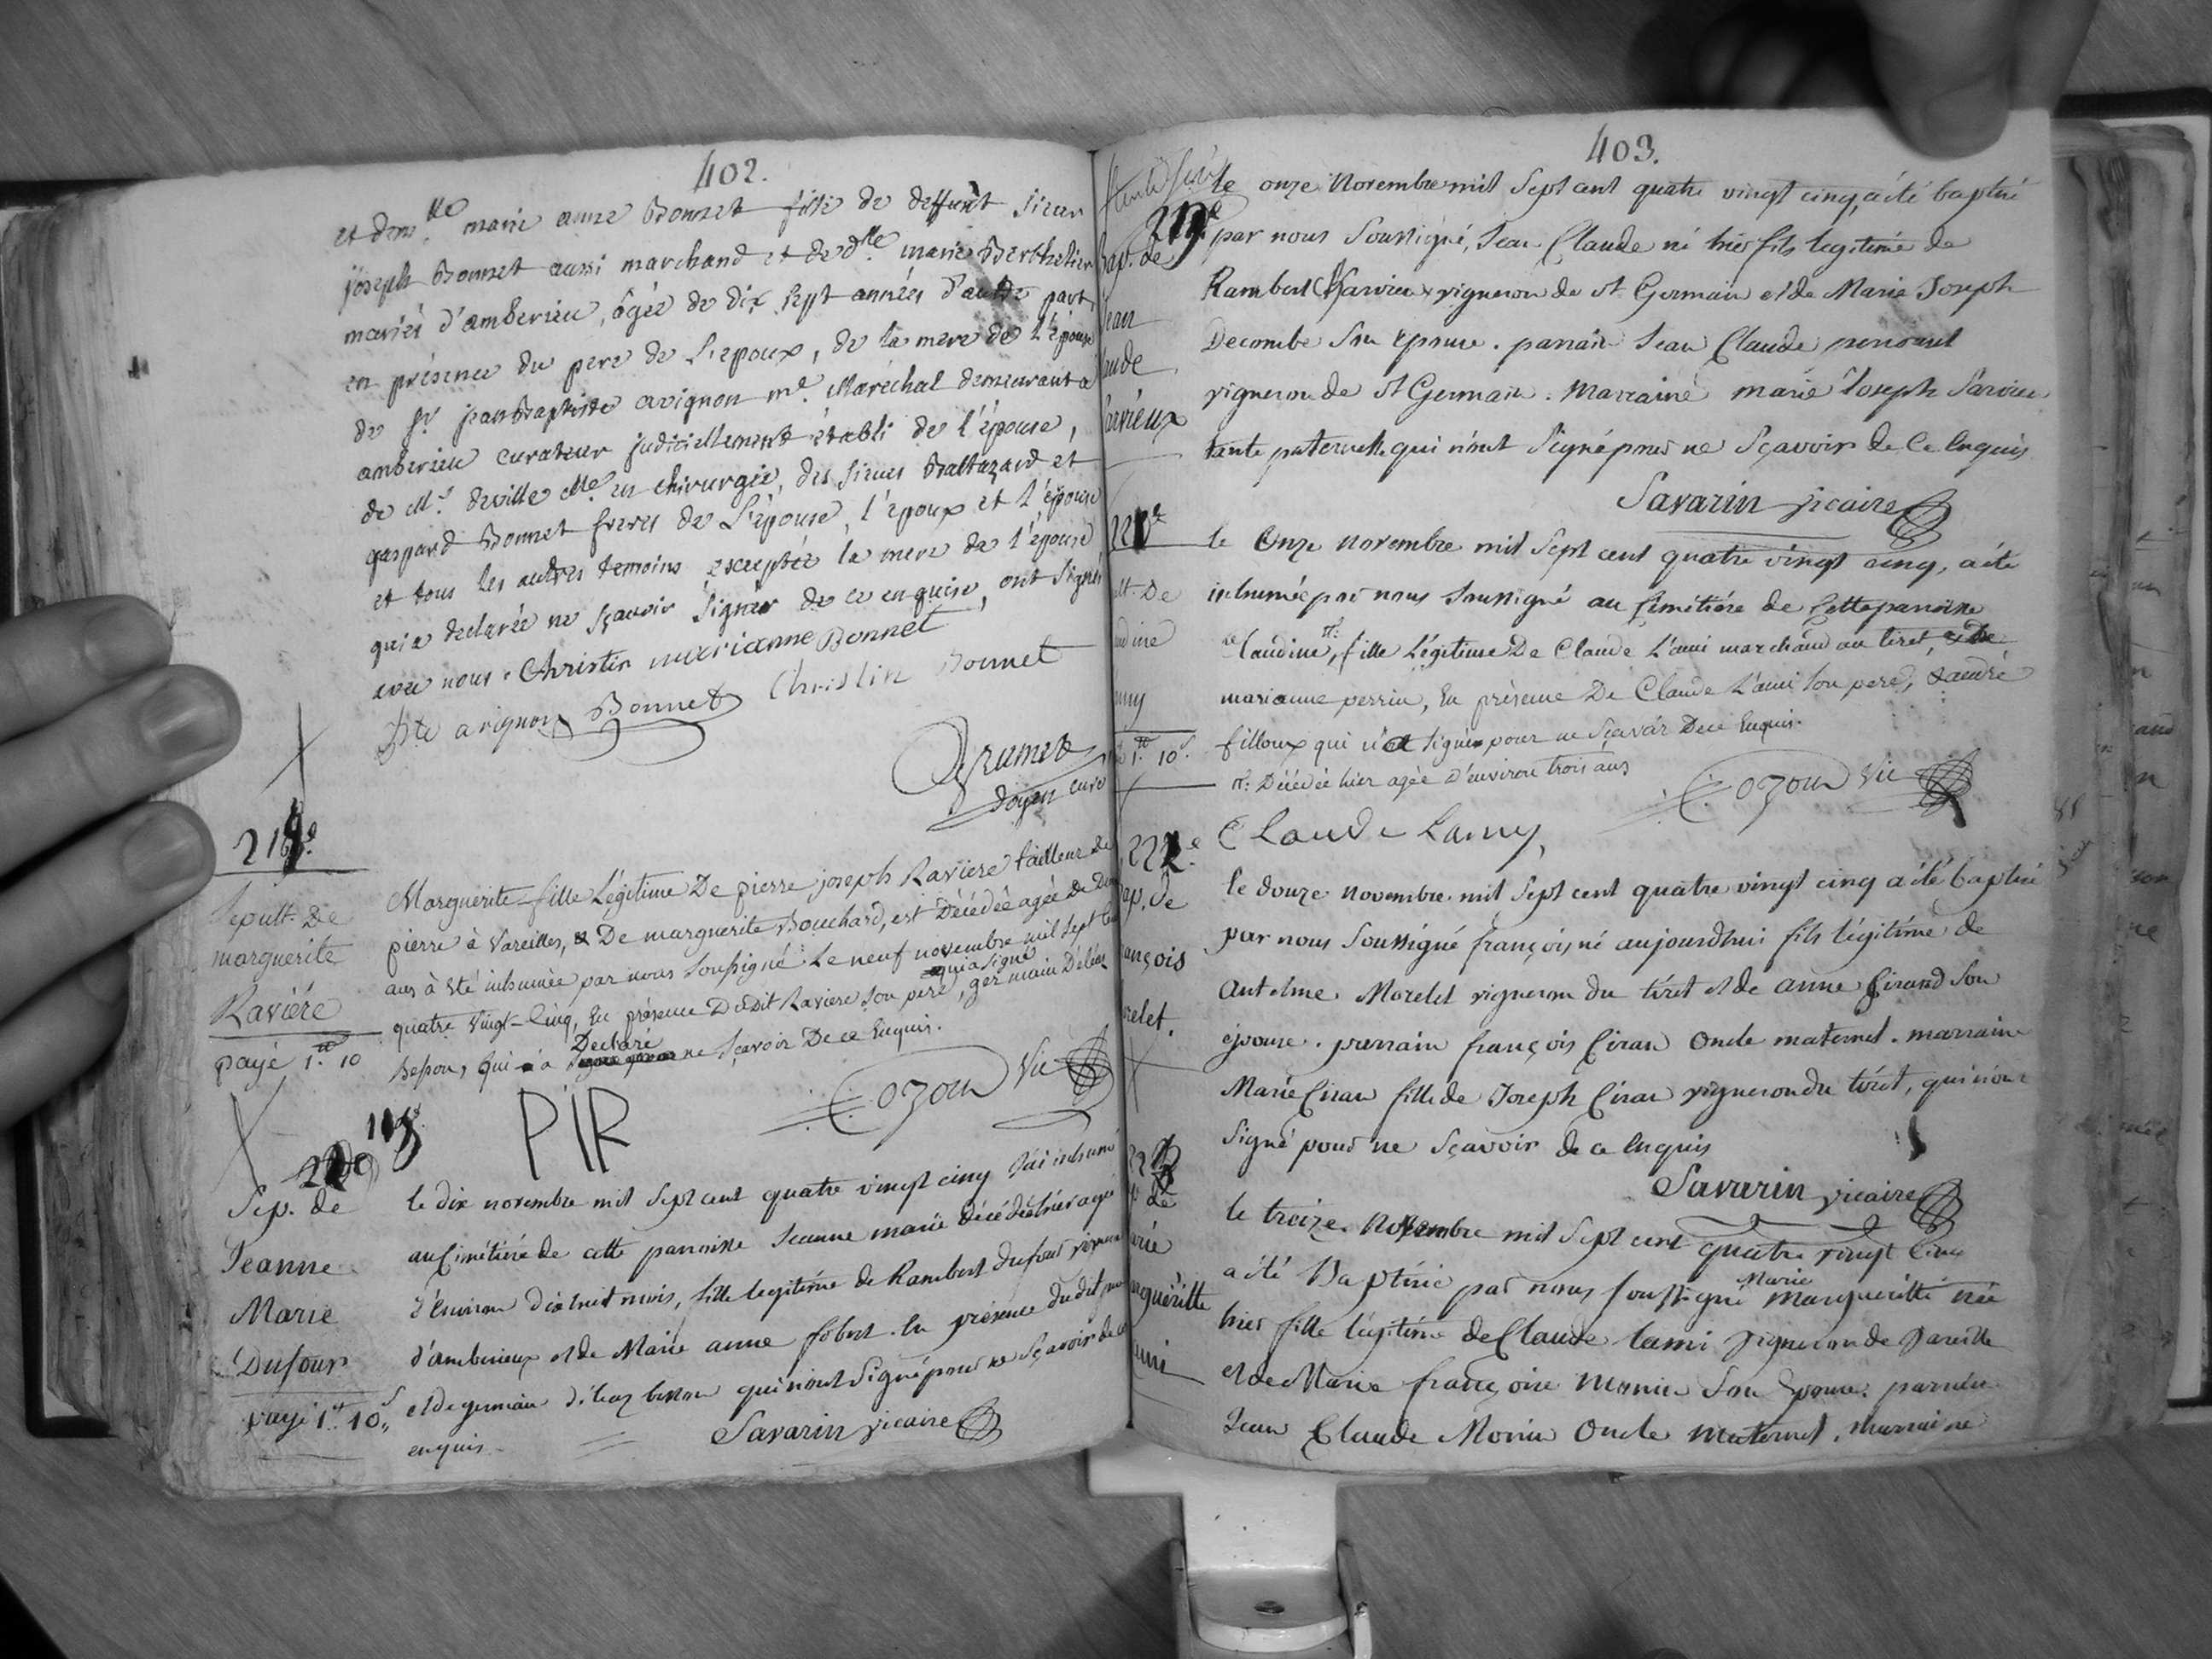 402.
et dem.lle marie anne Bonnet fille de deffunt sieur
joseph Bonnet aussi marchand et de dlle marie Berthelier
mariés d'amberieu, âgée de dix sept années d'autre part,
en présence du pere de l'epoux, de la mere de l'épouse
de Sr jean Baptiste avignon me. Maréchal demeurant a
amberieu curateur judiciellement établi de l'épouse,
de Mr. deville Me. en chirurgie, des sieurs Baltazard et
gaspard Bonnet freres de L'épouse, l'époux et l'épouse
et tous les autres temoins exceptée la mere de l'épouse
qui a declarée ne sçavoir signer de ce enquise, ont signés
avec nous. Christin marianne Bonnet
Bte avignon Bonnet Christin Bonnet
Grumet
doyen curé
218e.
Sepult. De
marguerite
Raviére
payé 1tt. 10
Marguerite fille Légitime De pierre joseph Raviere tailleur de
pierre à Vareilles, & De marguerite Bouchard, est Décédée agée de deux
ans à été inhumée par nous soussigné Le neuf novembre mil sept cent
quatre vingt-cinq, En présence Dudit Raviere son pere qui a signé, germain Déléaz
besson, qui a Declaré ne sçavoir De ce Enquis.
Cozon Vic
PIR
Sep. de
Jeanne
Marie
Dufour
payé 1tt. 10s
le dix novembre mil sept cent quatre vingt cinq J'ai inhumé
au Cimétiére de cette paroisse Jeanne marie décédée hier agée
d'environ dix huit mois, fille legitime de Rambert Dufour vigneron
d'amberieux et de Marie anne fobert. en présence du dit pere
et de germain déléaz besson qui n'ont signé pour ne sçavoir de ce
enquis
Savarin vicaire
403.
219e
Bap. de
Jean
Claude
Sarvieux
le onze Novembre mil sept cent quatre vingt cinq, a été baptisé
par nous soussigné, Jean Claude né hier fils legitime de
Rambert Sarvieu vigneron de st Germain et de Marie Joseph
Decombe son epouse. parrain Jean Claude
vigneron de st Germain. Marraine marie Joseph Sarvieu
tante paternelle qui n'ont signé pour ne sçavoir de Ce Enquis
Savarin vicaire
le Onze novembre mil sept cent quatre vingt cinq, a été
inhumée par nous soussigné au Cimétiére de Cette paroisse
Claudine, fille Légitime De Claude L'ami marchand au tiret, & De
marianne perrin, En présence De Claude L'ami son pere, & andré
filloux qui n'a signé pour ne sçavoir De ce Enquis.
Décédée hier agée d'environ trois ans
Cozon Vic
Claude Lamy,
le douze novembre mil sept cent quatre vingt cinq a été baptisé
par nous soussigné françois né aujourdhui fils légitime de
Antelme Morelet vigneron du tiret et de anne Ciraud son
épouse. parrain françois Ciran Oncle maternel. marraine
Marie Ciran fille de Joseph Ciran vigneron du tiret, qui n'ont
signé pour ne sçavoir de ce enquis
Savarin vicaire
le treize Novembre mil sept cent quatre vingt cinq
a été Baptisée par nous soussigné Marie Marguéritte née
hier fille légitime de Claude Lami vigneron de Vareille
et de Marie françoise Monin son Epouse. parrain
Jean Claude Monin Oncle Maternel, marraine